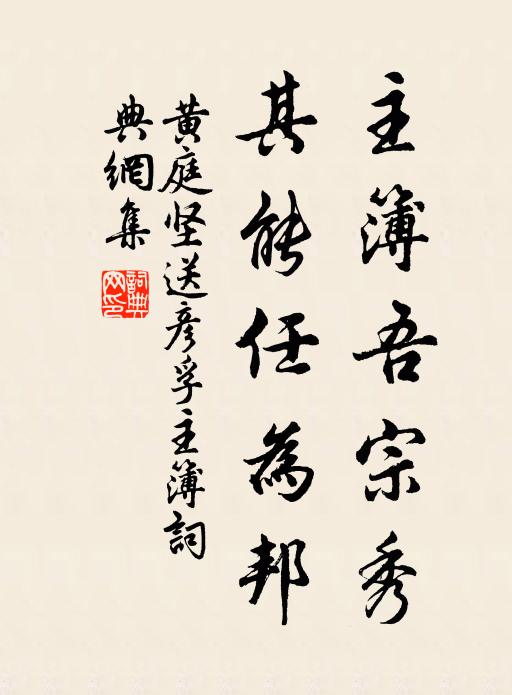 主簿吾宗秀
其能任為邦
黄庭坚送彦孚主簿詞
典網集
詞典網印